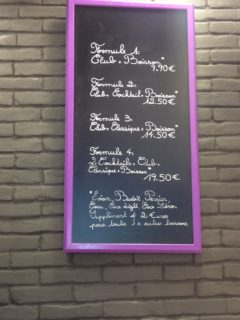 Formule 1:
Club + Boisson*
9.90€
Formule 2:
Club + Cocktail + Boisson*
12.50€
Formule 3:
Club + Classique + Boisson*
14.50€
Formule 4:
2 Cocktails + Club +
Classique + Boisson*
19.50€
*Evian, Badoit, Perrier,
Coca, Coca Light, Coca Zéro.
Supplément de 2 Euros
pour toute autre boisson.